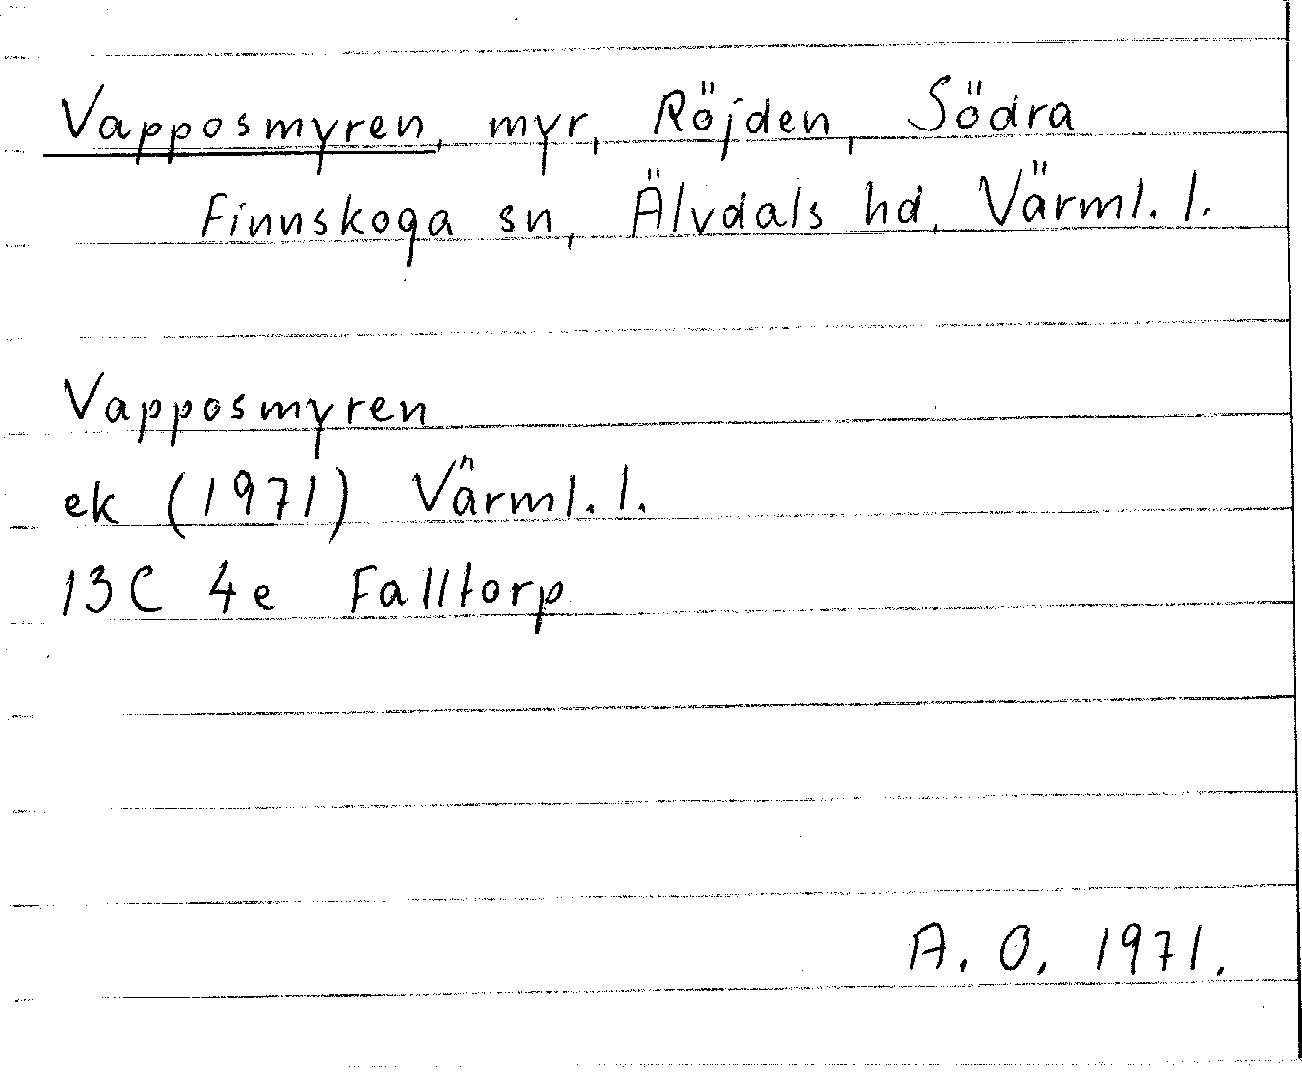 Vapposmyren, myr, Röjden, Södra
Finnskoga sn, Älvdals hd, Värml. l.
Vapposmyren
ek (1971) Värml. l.
13C 4e Falltorp
A. O. 1971.